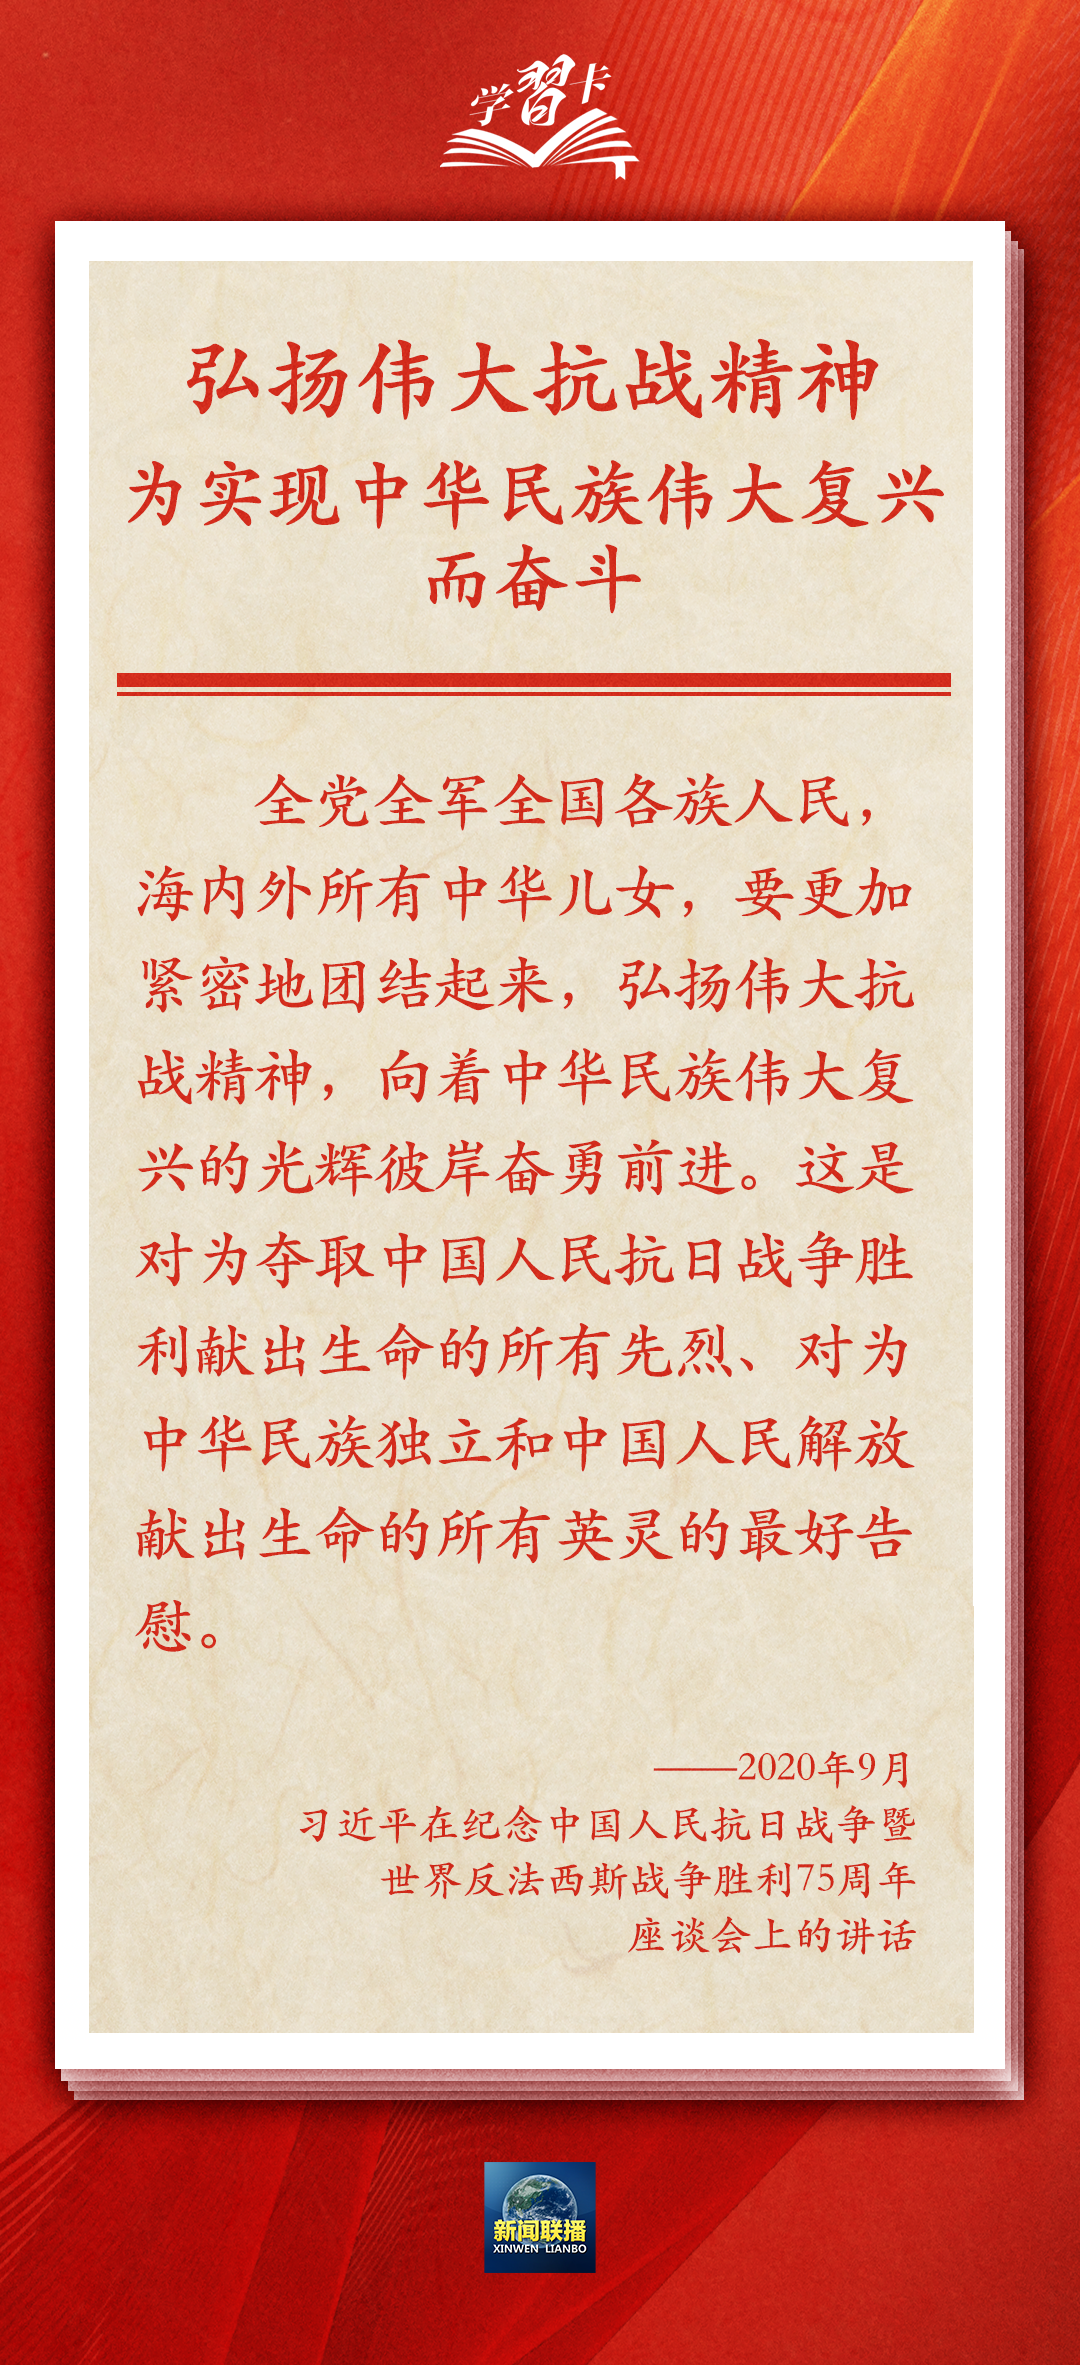 学習卡
弘扬伟大抗战精神
为实现中华民族伟大复兴
而奋斗
全党全军全国各族人民，
海内外所有中华儿女，要更加
紧密地团结起来，弘扬伟大抗
战精神，向着中华民族伟大复
兴的光辉彼岸奋勇前进。这是
对为夺取中国人民抗日战争胜
利献出生命的所有先烈、对为
中华民族独立和中国人民解放
献出生命的所有英灵的最好告
慰。
——2020年9月
习近平在纪念中国人民抗日战争暨
世界反法西斯战争胜利75周年
座谈会上的讲话
新闻联播
XINWEN LIANBO